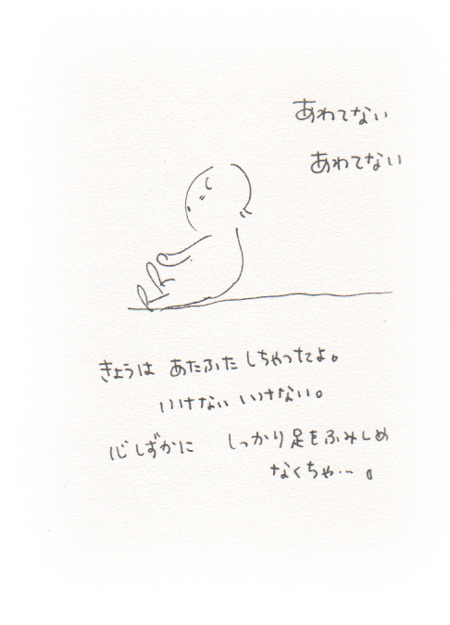 あわてない
あわてない
きょうは あたふた しちゃったよ。
いけない いけない。
心しずかに しっかり足をふみしめ
なくちゃ…。